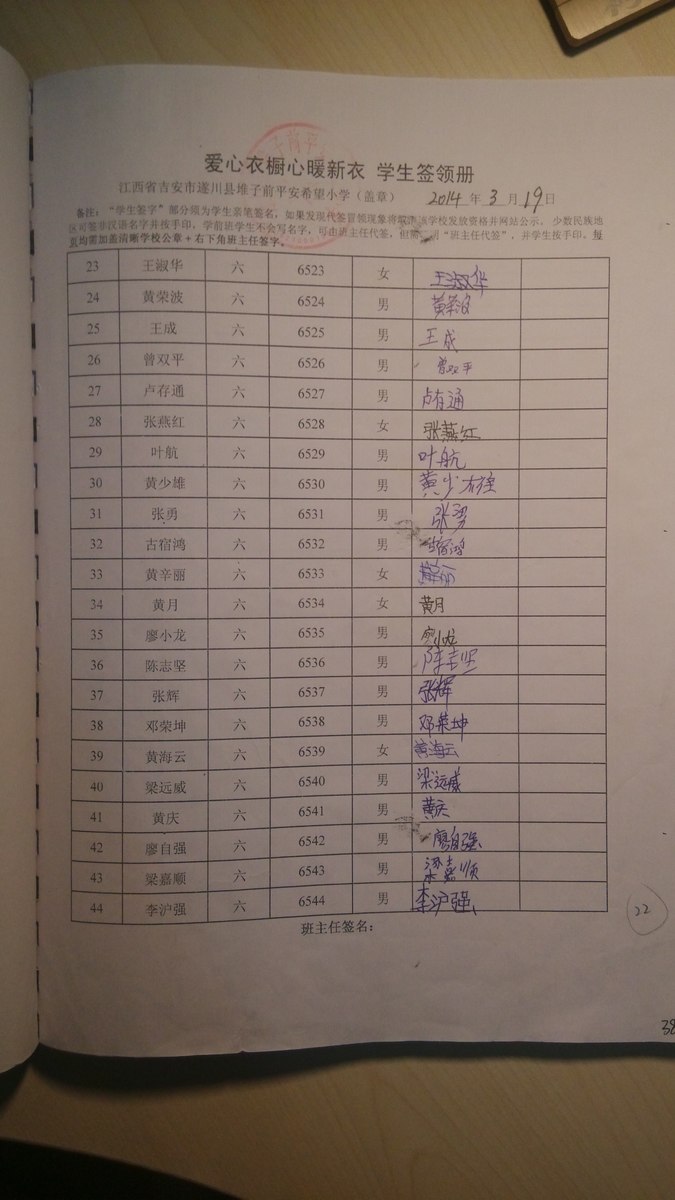 爱心衣橱心暖新衣 学生签领册
江西省吉安市遂川县堆子前平安希望小学（盖章） 2014 年 3 月 19 日
备注：“学生签字”部分须为学生亲笔签名，如果发现代签冒领现象将取消该学校发放资格并网站公示。少数民族地
区可签非汉语名字并按手印，学前班学生不会写名字，可由班主任代签，但需 明“班主任代签”，并学生按手印。每
页均需加盖清晰学校公章＋右下角班主任签字。
23 王淑华 六 6523 女 王淑华
24 黄荣波 六 6524 男 黄荣波
25 王成 六 6525 男 王成
26 曾双平 六 6526 男 曾双平
27 卢存通 六 6527 男 卢存通
28 张燕红 六 6528 女 张燕红
29 叶航 六 6529 男 叶航
30 黄少雄 六 6530 男 黄少雄
31 张勇 六 6531 男 张勇
32 古宿鸿 六 6532 男 古宿鸿
33 黄辛丽 六 6533 女
34 黄月 六 6534 女 黄月
35 廖小龙 六 6535 男 廖小龙
36 陈志坚 六 6536 男 陈志坚
37 张辉 六 6537 男 张辉
38 邓荣坤 六 6538 男 邓荣坤
39 黄海云 六 6539 女 黄海云
40 梁远威 六 6540 男 梁远威
41 黄庆 六 6541 男 黄庆
42 廖自强 六 6542 男 廖自强
43 梁嘉顺 六 6543 男 梁嘉顺
44 李沪强 六 6544 男 李沪强
22
班主任签名：
38